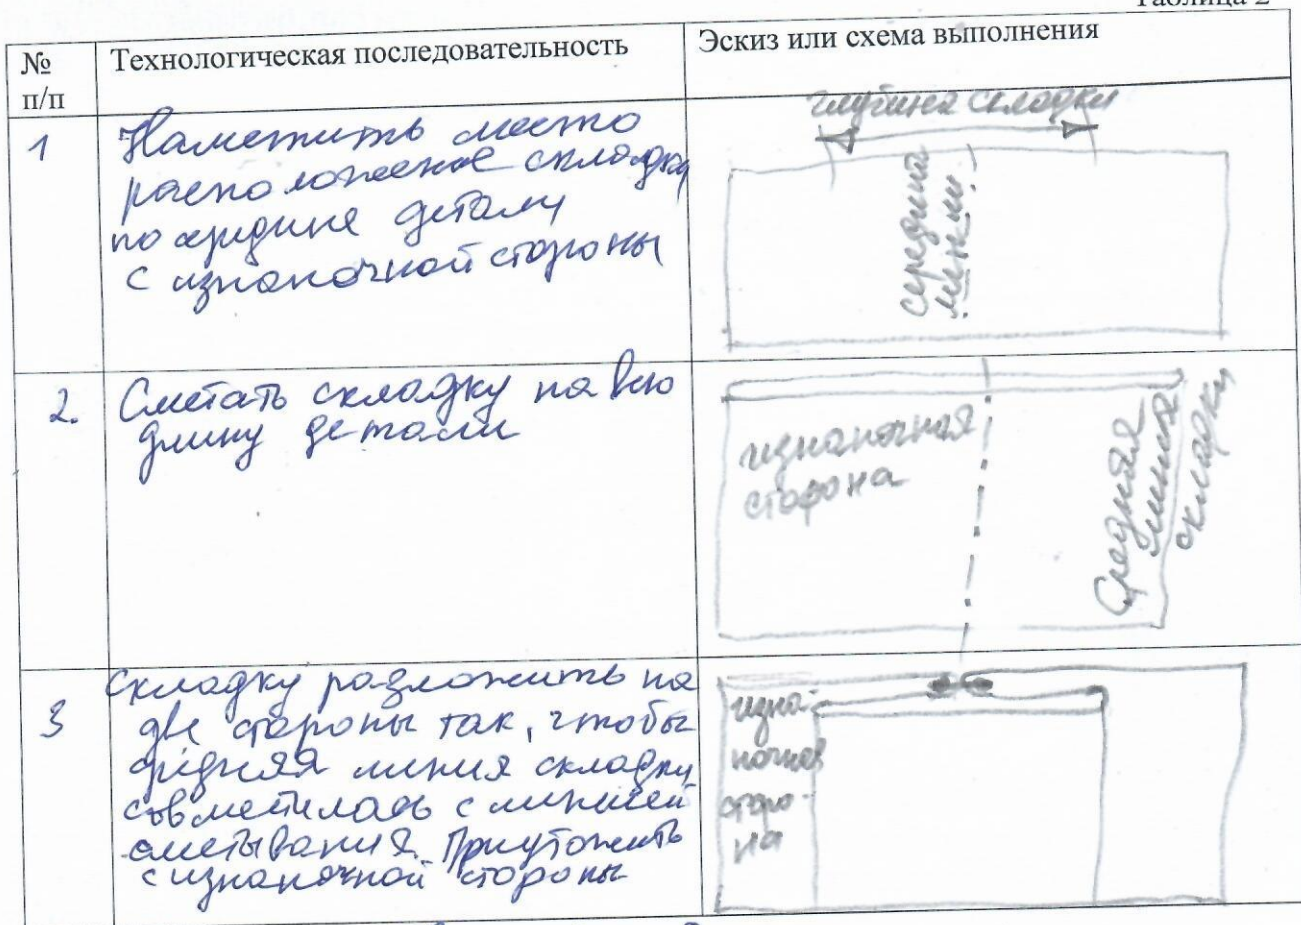 Таблица 2
№ п/п
Технологическая последовательность
Эскиз или схема выполнения
1
Наметить место
расположение складки
по середине детали
с изнаночной стороны
глубина складки
середина
линии
2.
Сметать складку на всю
длину детали
изнаночная
сторона
Средняя
линия
складки
3
Складку разложить на
две стороны так, чтобы
средняя линия складки
совместилась с линией
сметывания. Приутюжить
с изнаночной стороны
изна-
ночная
сторо-
на